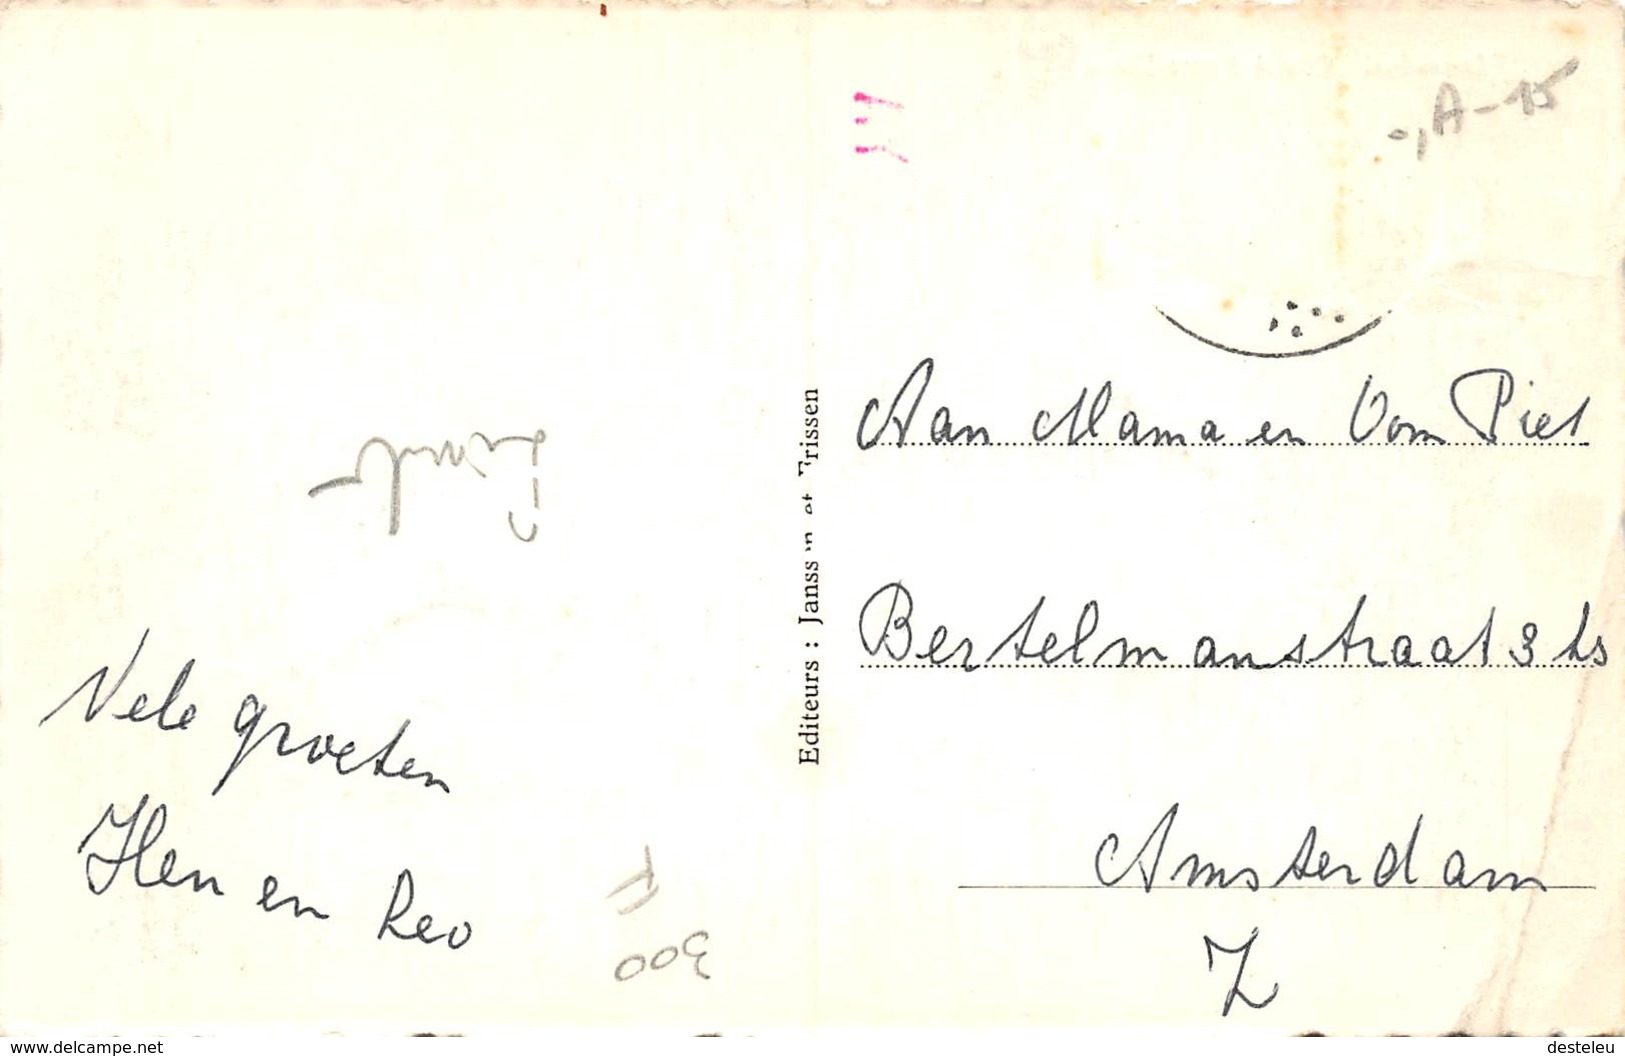 Vele groeten
Hen en Leo
300
F
Editeurs : Janssen et Frissen
-,A-15
Aan Mama en Oom Piet
Bertelmanstraat 3 hs
Amsterdam
Z
www.delcampe.net
desteleu